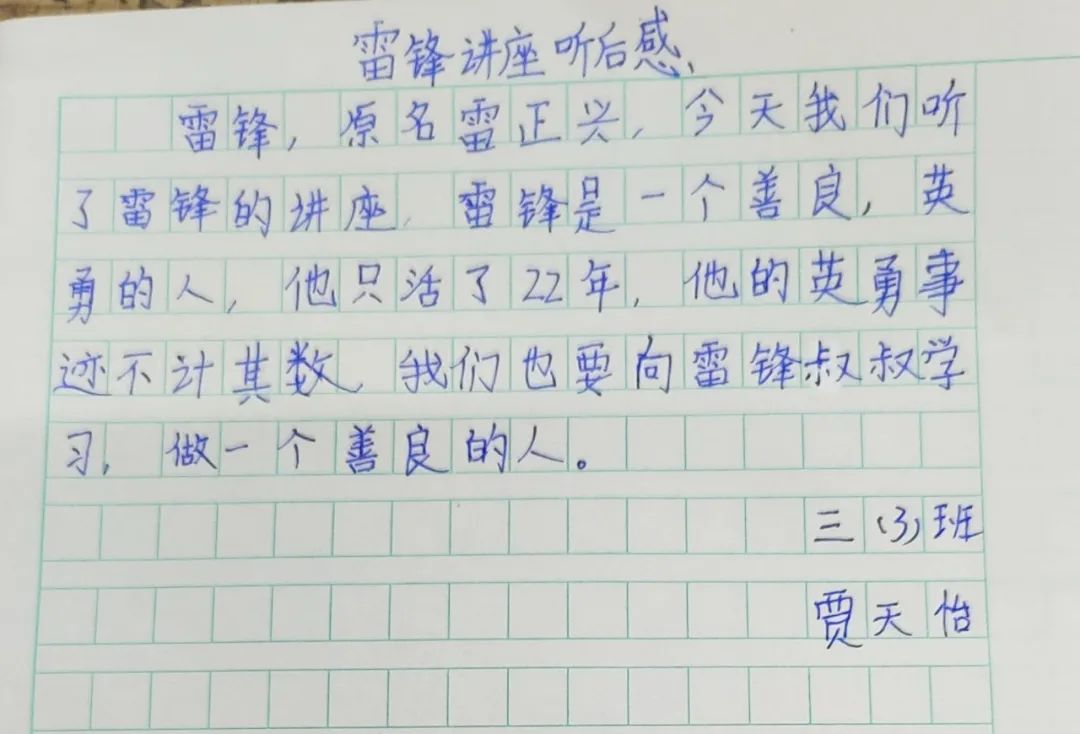 雷锋讲座听后感、
雷锋，原名雷正兴，今天我们听
了雷锋的讲座，雷锋是一个善良，英
勇的人，他只活了22年，他的英勇事
迹不计其数，我们也要向雷锋叔叔学
习，做一个善良的人。
三（3）班
贾天怡